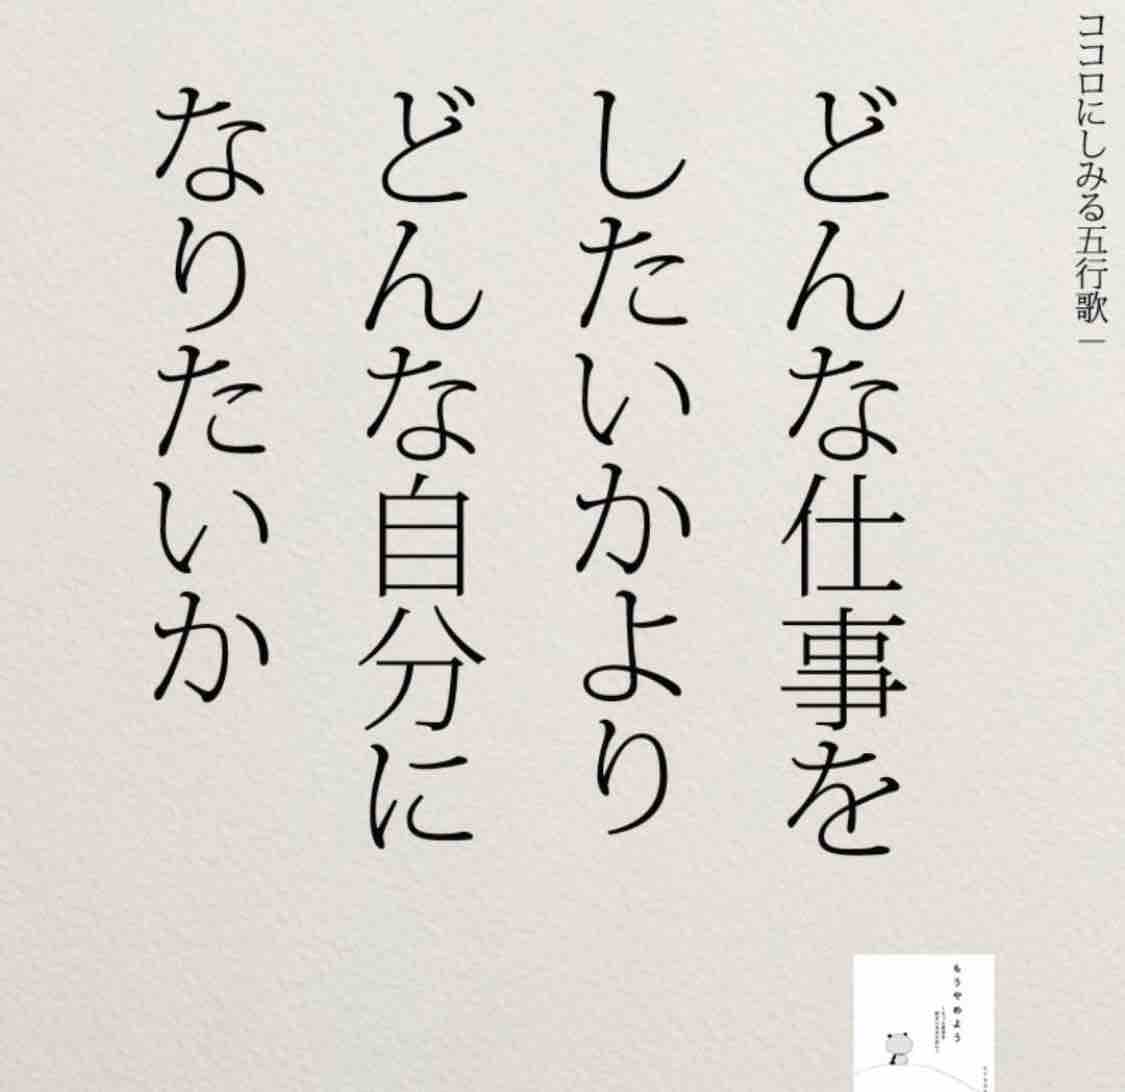 ココロにしみる五行歌
どんな仕事を
したいかより
どんな自分に
なりたいか
もうやめよう